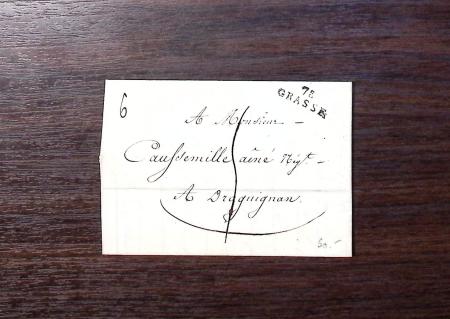 6
78
GRASSE
A Monsieur
Caussemille aîné Négt.
A Draguignan.
60.-